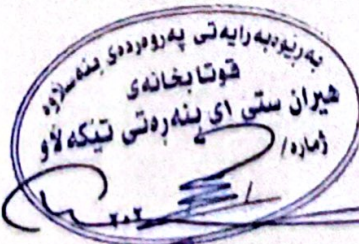 بەڕێوەبەرایەتی پەروەردەی بنەسڵاوە
قوتابخانەی
هیران ستی ١ی بنەڕەتی تێکەڵاو
ژمارە/
٢٠٢ /